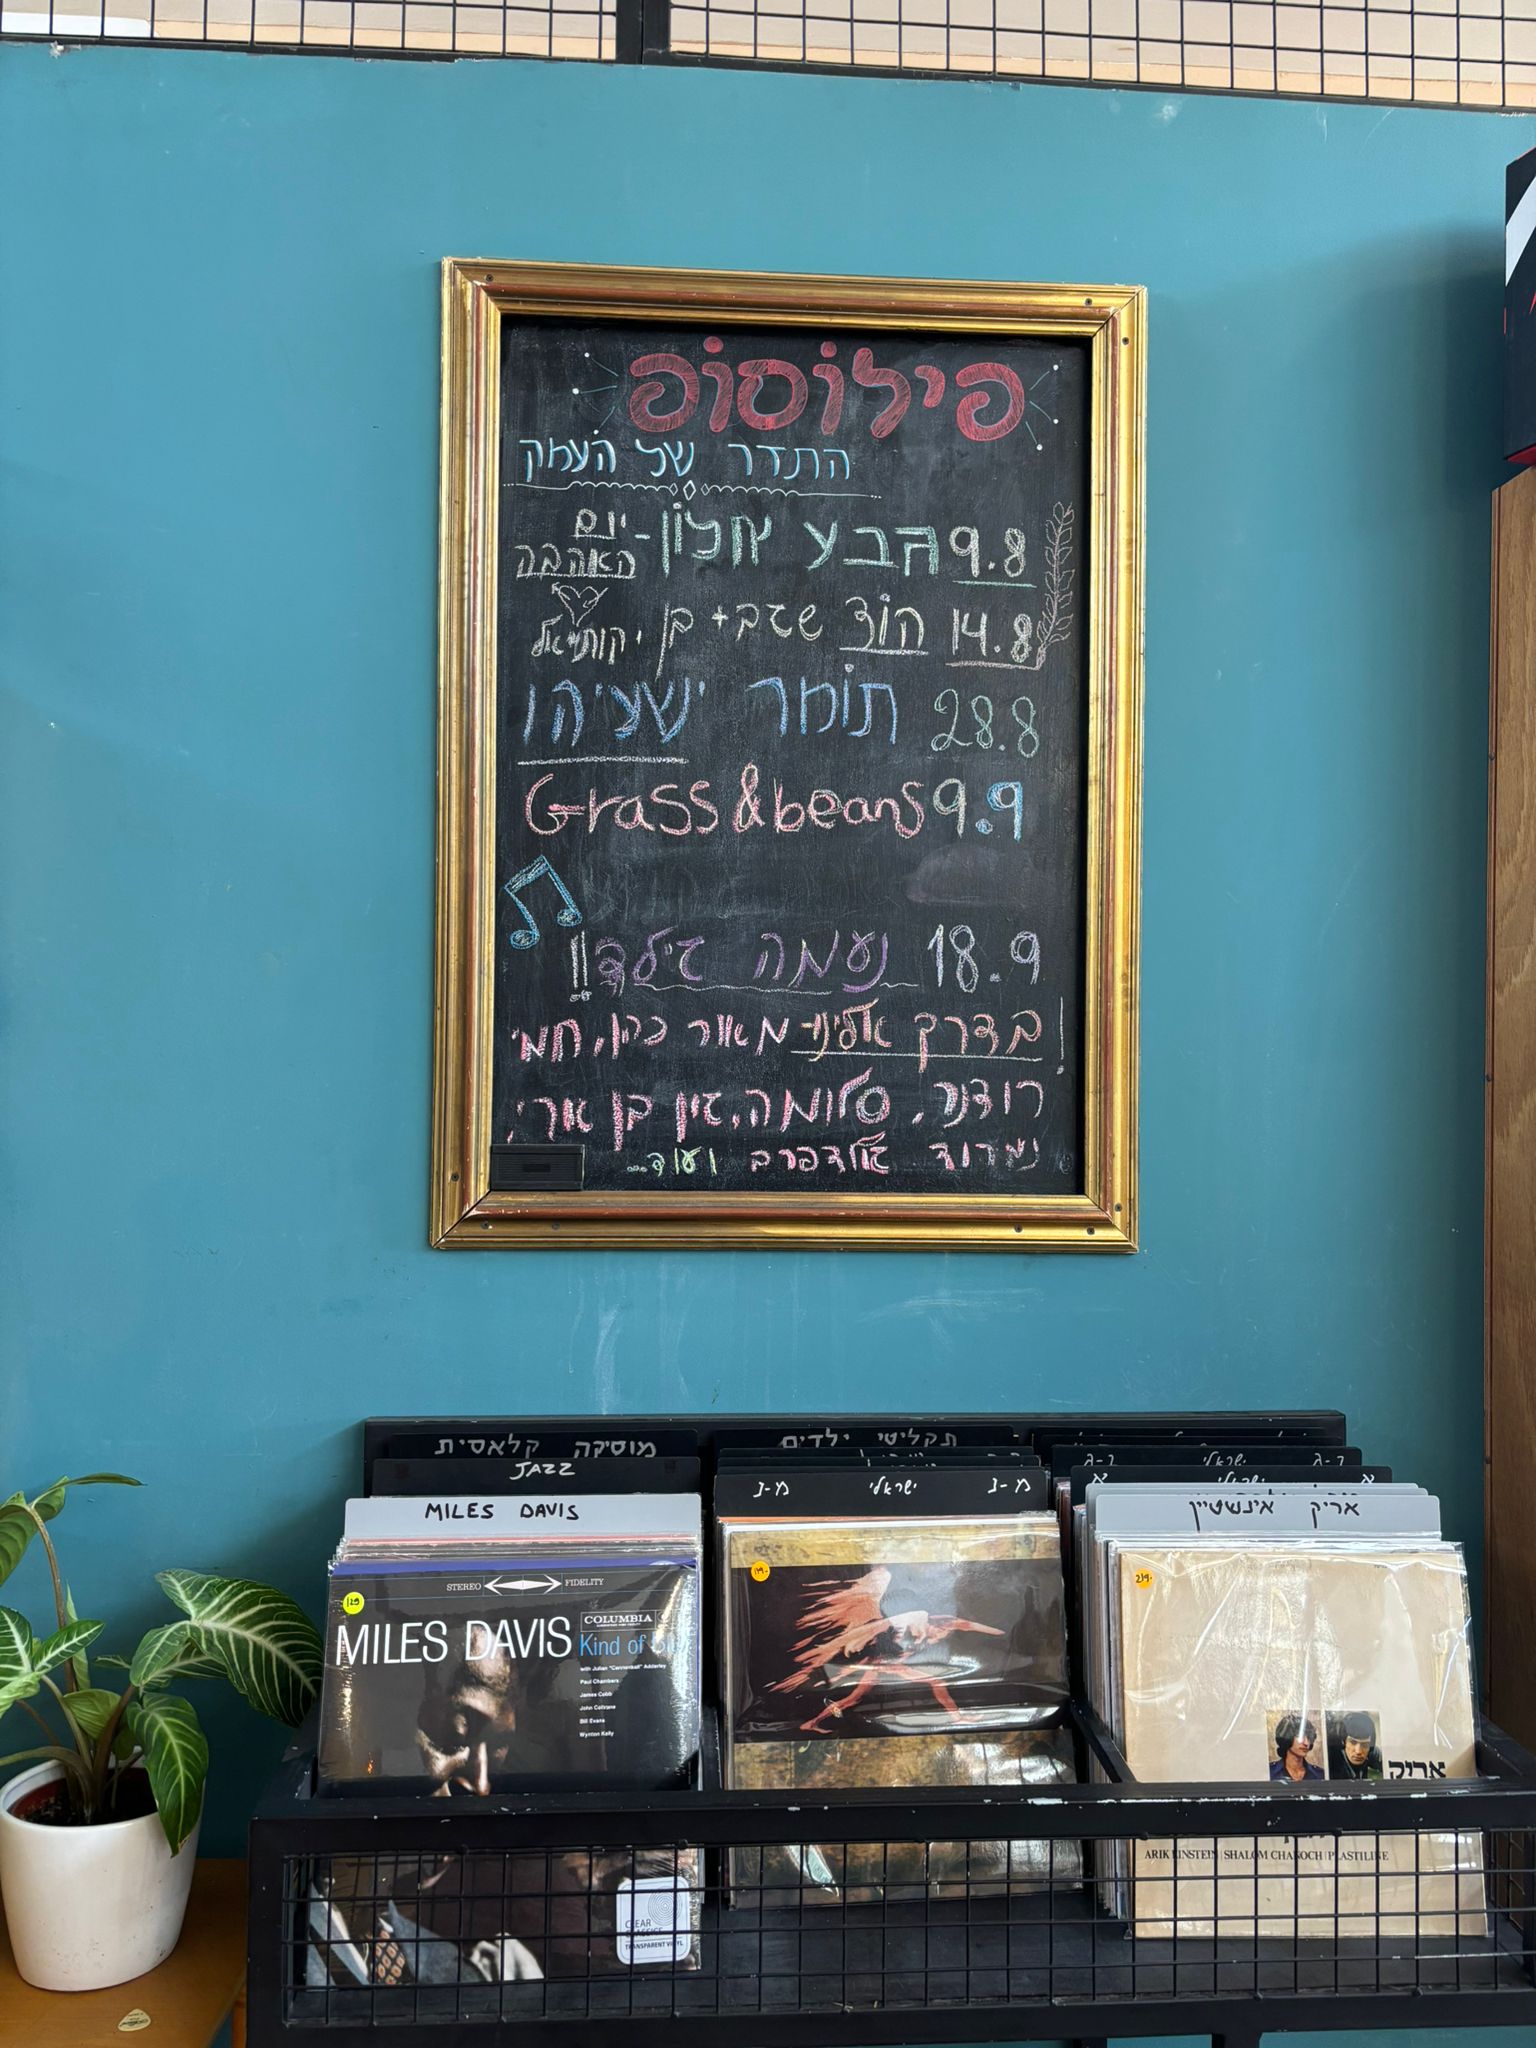 פילוסופ
התדר של העמק
9.8 גבע אלון - יום האהבה
14.8 הוד שגב + בן יקותיאל
28.8 תומר ישעיהו
Grass & beans 9.9
18.9 נעמה גילד!!
בדרך אלינו - מאור כהן, תמי
רודנר, סלומה, זין בן ארי,
נמרוד אלדפרב ועוד...
מוסיקה קלאסית
תקליטי ילדים
JAZZ
מ-נ ישראלי מ-נ
ישראלי
MILES DAVIS
אריק אינשטיין
STEREO FIDELITY
129
MILES DAVIS
COLUMBIA
Kind of
with Julian "Cannonball" Adderley
Paul Chambers
James Cobb
John Coltrane
Bill Evans
Wynton Kelly
CLEAR
CLASSICS
TRANSPARENT VINYL
119.-
219.-
אריק
ARIK EINSTEIN | SHALOM CHANOCH | PLASTILINE